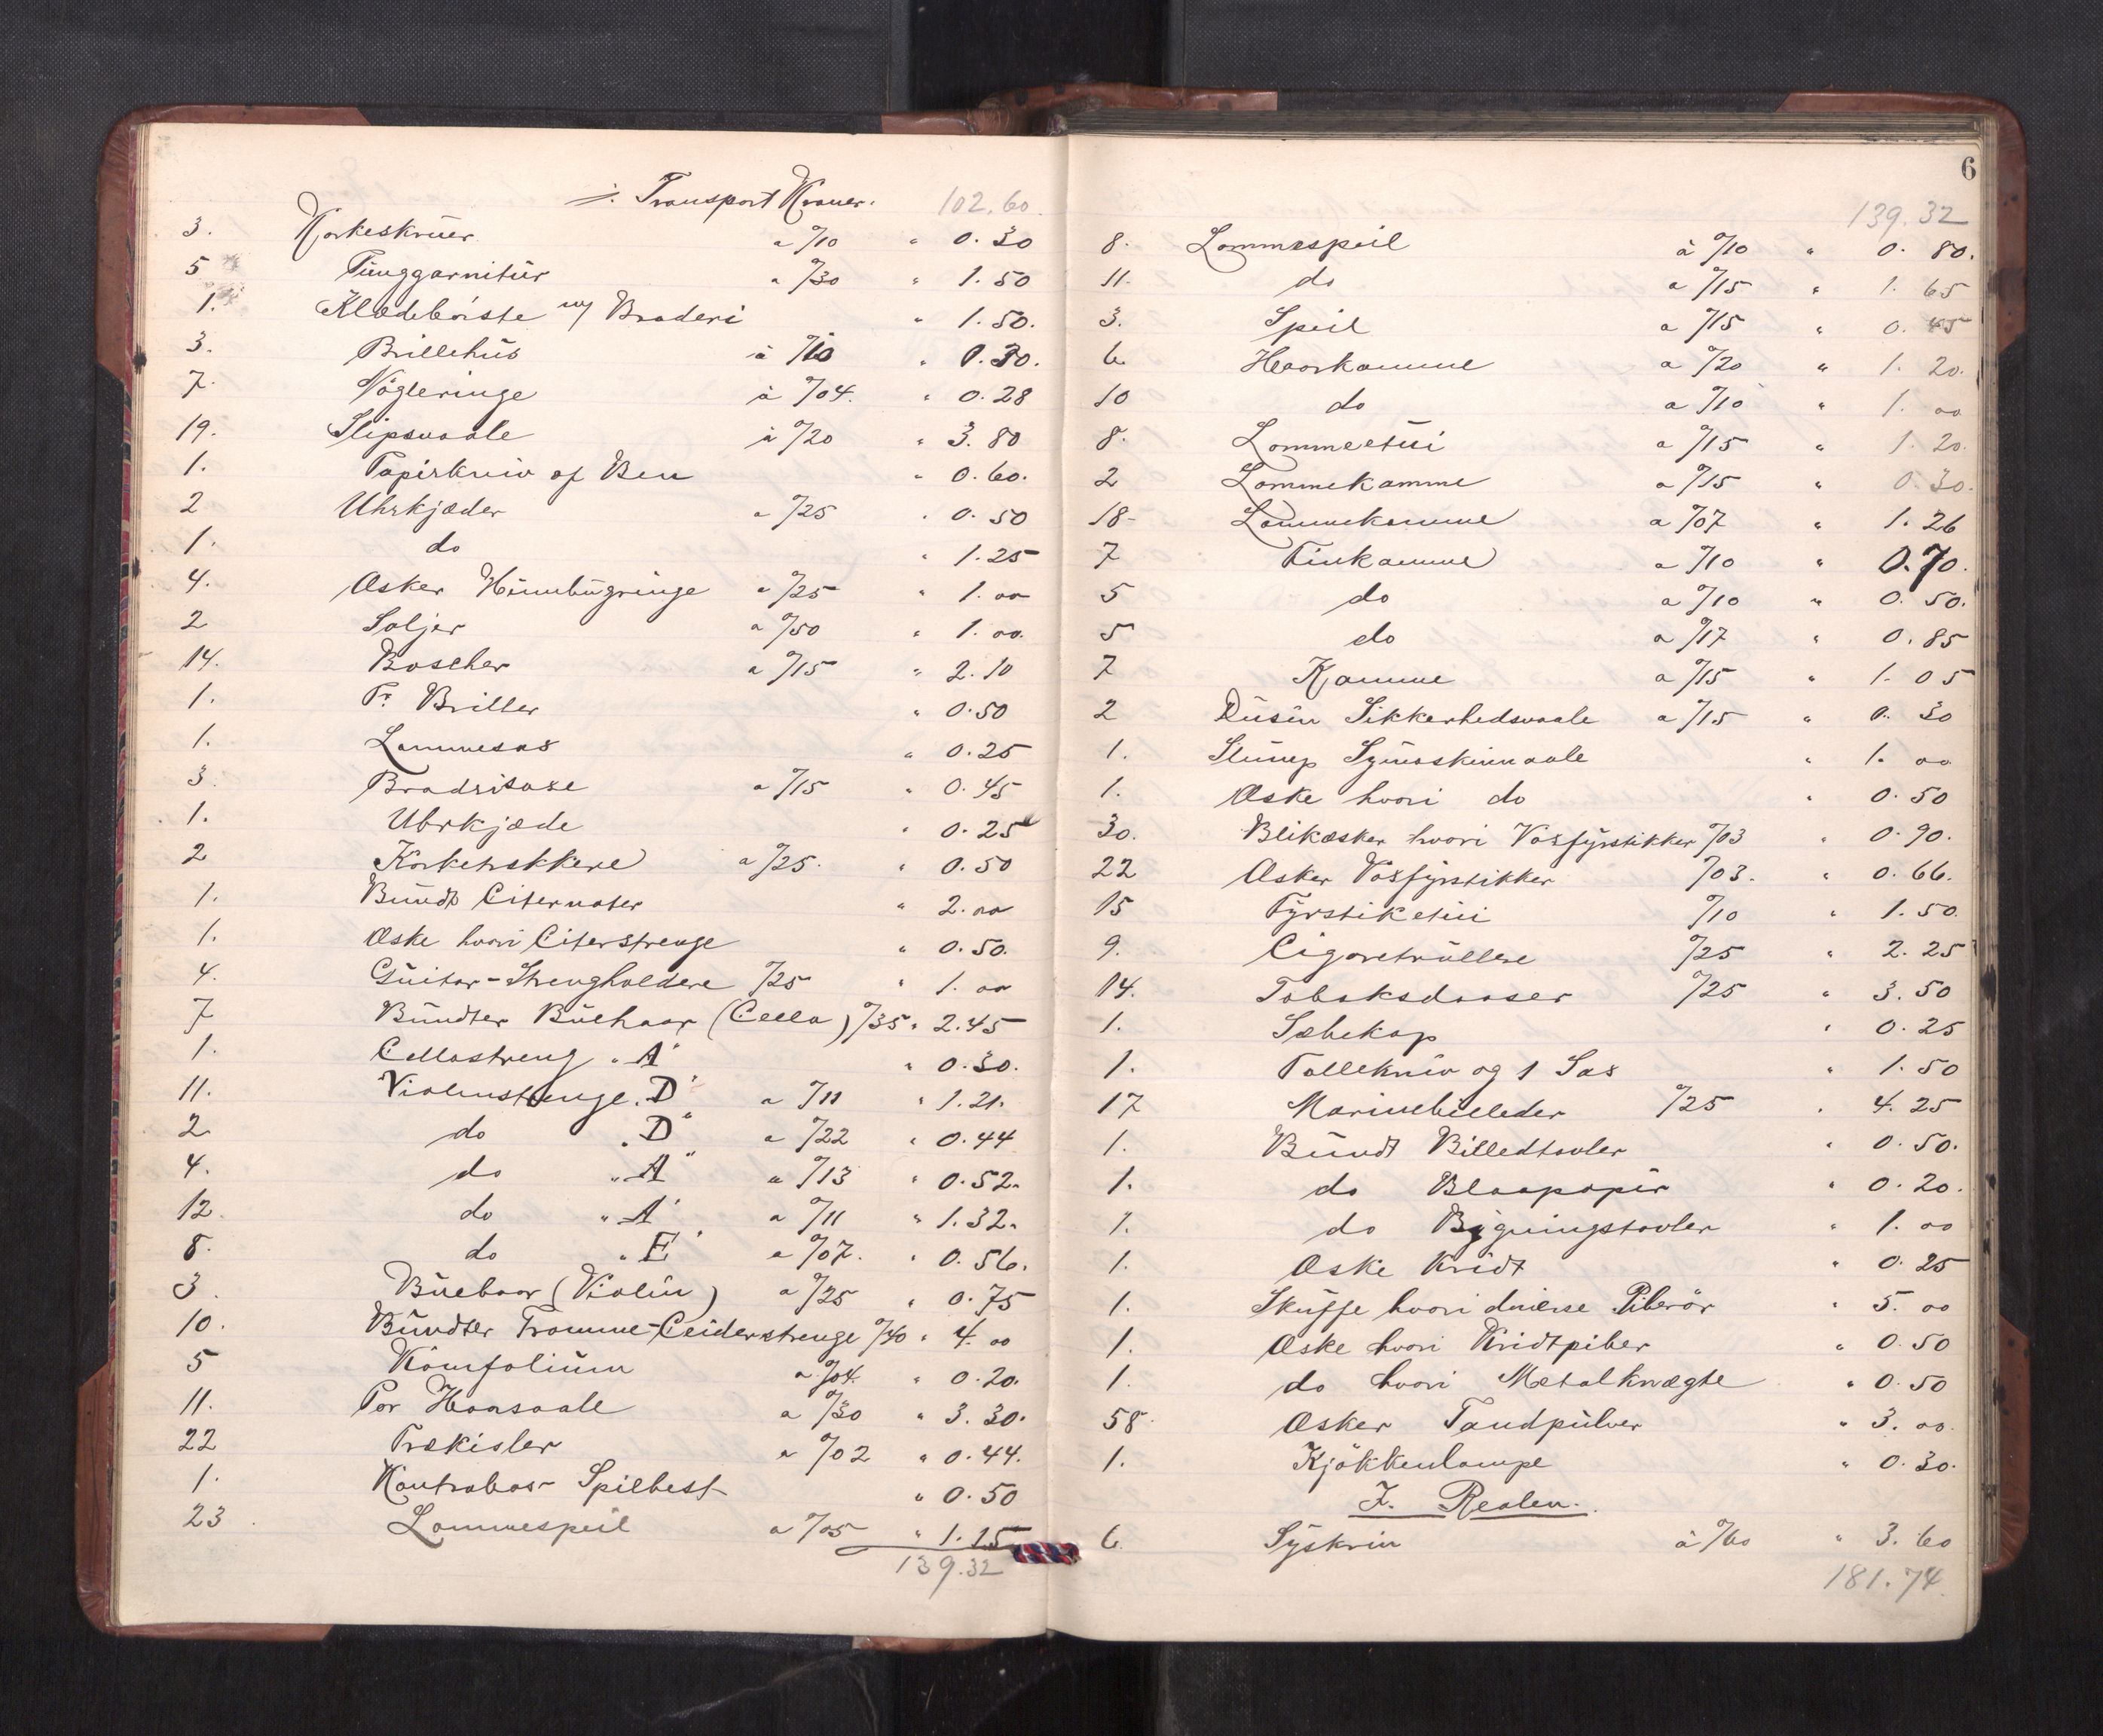 ./. Transport Kroner. 102.60.
3. Korkeskruer a %10 " 0.30
5 Punggarnitur a %30 " 1.50
1. Klædebørste m/ Broderi " 1.50.
3. Brillehus à %10 " 0.30.
7. Nøgleringe à %04. " 0.28
19. Slipsnaale à %20 " 3.80
1. Papirkniv af Ben " 0.60.
2 Uhrkjæder a %25 " 0.50
1. do " 1.25
4. Æsker Humbugringe a %25 " 1.00
2 Soljer a %50 " 1.00.
14. Roscher a %15 " 2.10
1. Pr Briller " 0.50
1. Lommesax " 0.25
3. Brodrisaxe a %15 " 0.45
1. Uhrkjæde " 0.25
2 Korketrækkere a %25. " 0.50
1. Bundt Citernoter " 2.00
1. Æske hvori Citerstrenge " 0.50.
4. Guitar-Strengholdere %25 " 1.00
7 Bundter Buehaar (Cello) %35 " 2.45
1. Cellostreng "A" " 0.30.
11. Violinstrenge "D" a %11 " 1.21.
2 do "D" a %22 " 0.44
4. do "A" a %13 " 0.52.
12. do "A" a %11 " 1.32.
8. do "E" a %07. " 0.56.
3. Buehaar (Violin) a %25 " 0.75
10. Bundter Tromme-Ceiderstrenge %40 " 4.00
5 Komfolium a %04. " 0.20.
11. Par Haarsaale a %30 " 3.30.
22 Trækisler a %02 " 0.44.
1. Kontrabas-Spilbest " 0.50
23. Lommespeil a %05 " 1.15
139.32
6
139.32
8. Lommespeil à %10 " 0.80.
11. do a %15 " 1.65
3. Speil a %15 " 0.45
6. Haarkamme a %20 " 1.20.
10 do a %10 " 1.00
8. Lommeetui a %15 " 1.20.
2 Lommekamme a %15 " 0.30.
18- Lommekamme a %07 " 1.26
7 Finkamme a %10 " 0.70.
5 do a %10 " 0.50.
5 do a %17 " 0.85
7 Kjamme a %15 " 1.05
2 Dusin Sikkerhedsnaale a %15 " 0.30
1. Slump Symaskinnaale " 1.00
1. Æske hvori do " 0.50
30. Blikæsker hvori Voxfyrstikker %03 " 0.90.
22 Æsker Voxfyrstikker %03. " 0.66.
15 Fyrstiketui %10 " 1.50.
9. Cigaretrullere %25 " 2.25
14. Tobaksdaaser %25 " 3.50
1. Sæbekop " 0.25
1. Tollekniv og 1 Sax " 1.50
17 Marinebilleder %25 " 4.25
1. Bundt Billedtavler " 0.50.
1. do Blaapapir " 0.20.
1. do Bygningstavler " 1.00
1. Æske Kridt " 0.25
1. Skuffe hvori diverse Piberør " 5.00
1. Æske hvori Kridtpiber " 0.50
1. do hvori Metalknægte " 0.50
58. Æsker Tandpulver " 3.00.
1. Kjøkkenlampe " 0.30.
I. Reolen.
6. Syskrin à %60 " 3.60
181.74.